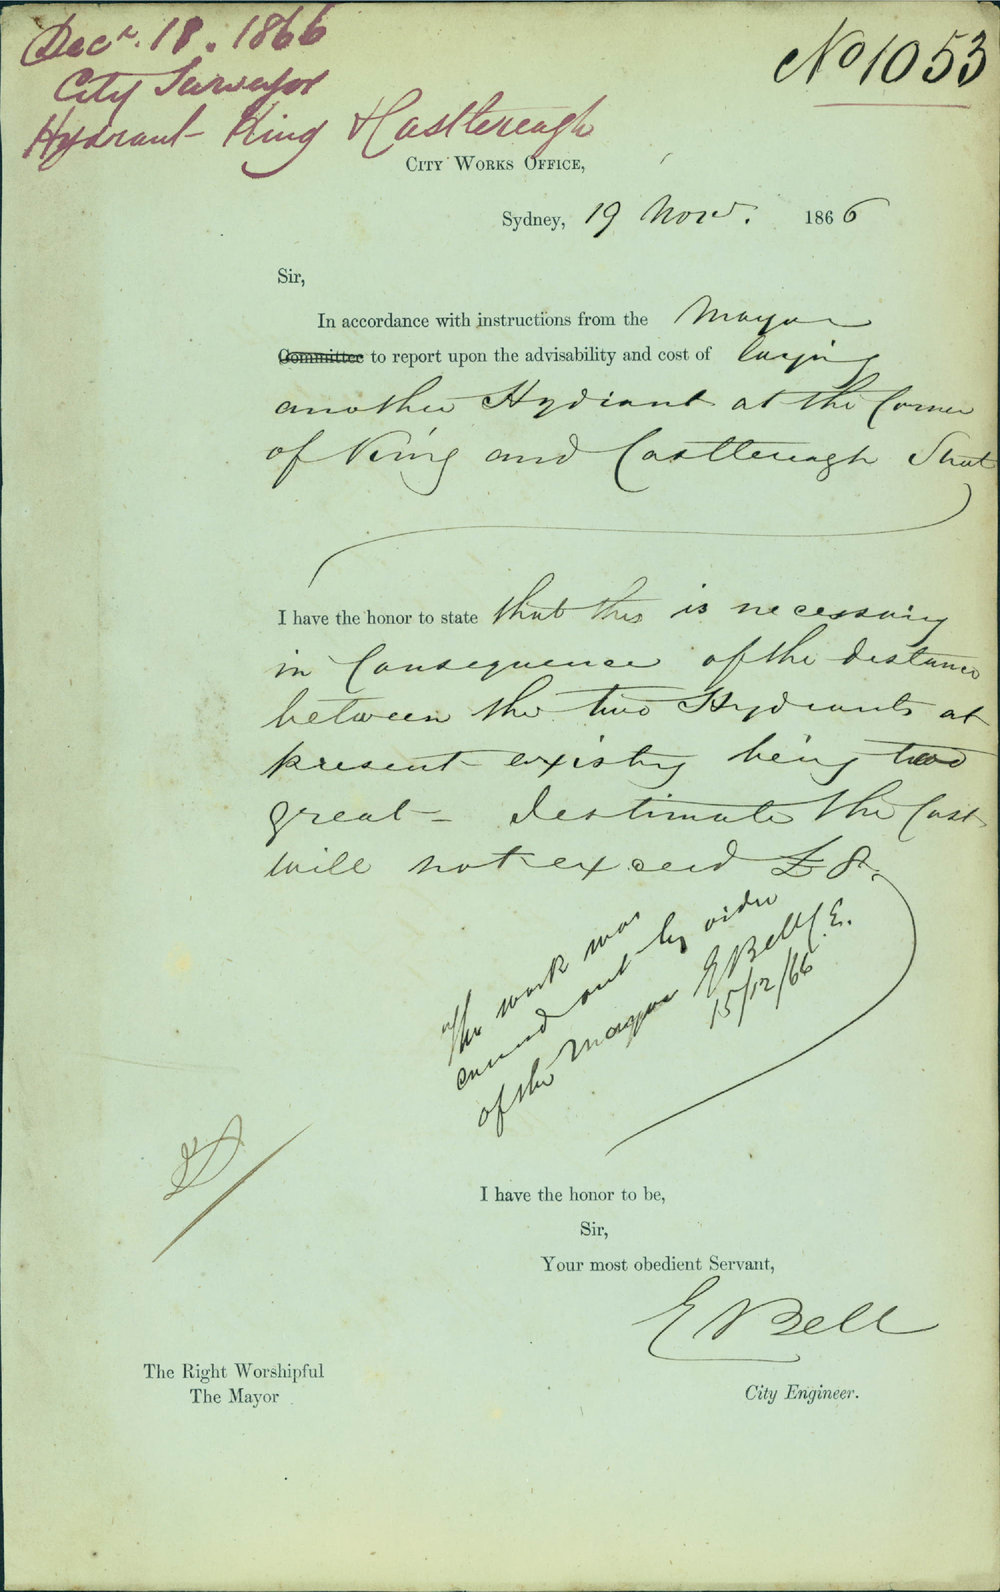 Decr. 18. 1866
City Surveyor
Hydrant King & Castlereagh
No 1053
City Works Office,
Sydney, 19 Novr. 1866
Sir,
In accordance with instructions from the Mayor
Committee to report upon the advisability and cost of laying
another Hydrant at the Corner
of King and Castlereagh Street
I have the honor to state that this is necessary
in Consequence of the distance
between the two Hydrants at
present existing being too
great – I estimate the Cost
will not exceed £8.
The work was
carried out by order
of the Mayor E Bell C.E.
15/12/66
I have the honor to be,
Sir,
Your most obedient Servant,
E Bell
City Engineer.
The Right Worshipful
The Mayor